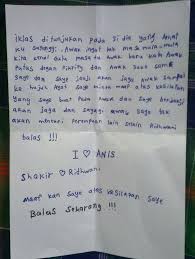 Iklas ditunjukan pada si dia yang amat
ku sayangi. Awak ingat tak masa mula-mula
kita kenal dulu masa tu awak baru
Putus dengan Awak dan saya sama
saya dan saya janji akan jaga Awak sampai
ke. saya minta maaf atas kesilatan
yang saya buat pada Awak dan saya berjanji
akan jaga dan sayangi awak. saya tak
akan mencari Perempuan lain selain Ridhwani
balas !!!
I ♡ ANIS
Shakir ♡ Ridhwani
maaf kan saya atas kesilatan saya
Balas Sekarang !!!